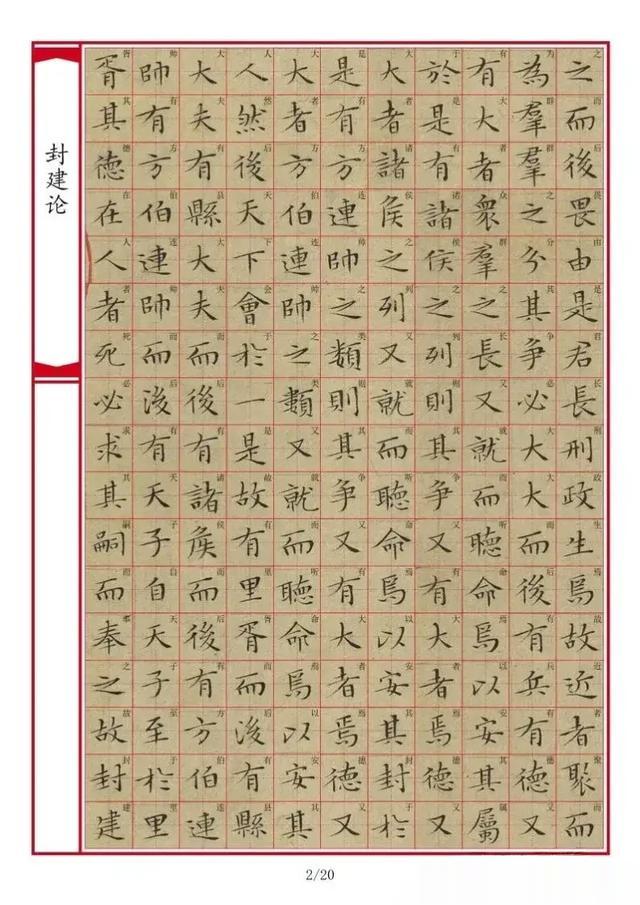 封建论
之而後畏由是君長刑政生焉故近者聚而
為羣羣之分其争必大大而後有兵有德又
有大者衆羣之長又就而聽命焉以安其屬
於是有諸侯之列則其争又有大者焉德又
大者諸侯之列又就而聽命焉以安其封於
是有方連帥之類則其争又有大者焉德又
大者方伯連帥之類又就而聽命焉以安其
人然後天下會於一是故有里胥而後有縣
大夫有縣大夫而後有諸侯而後有方伯連
帥有方伯連帥而後有天子自天子至於里
胥其德在人者死必求其嗣而奉之故封建
2/20